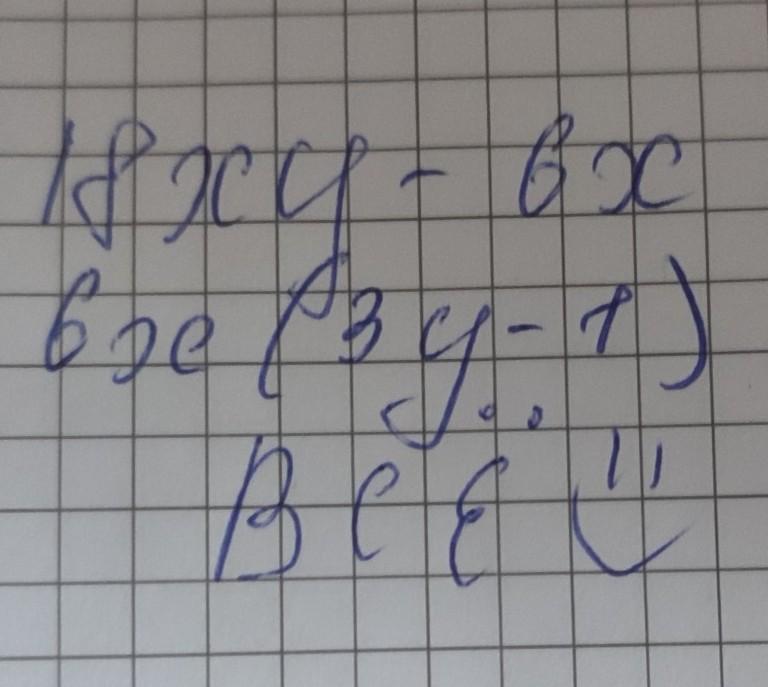 18xy - 6x
6x(3y - 1)
ВСЁ